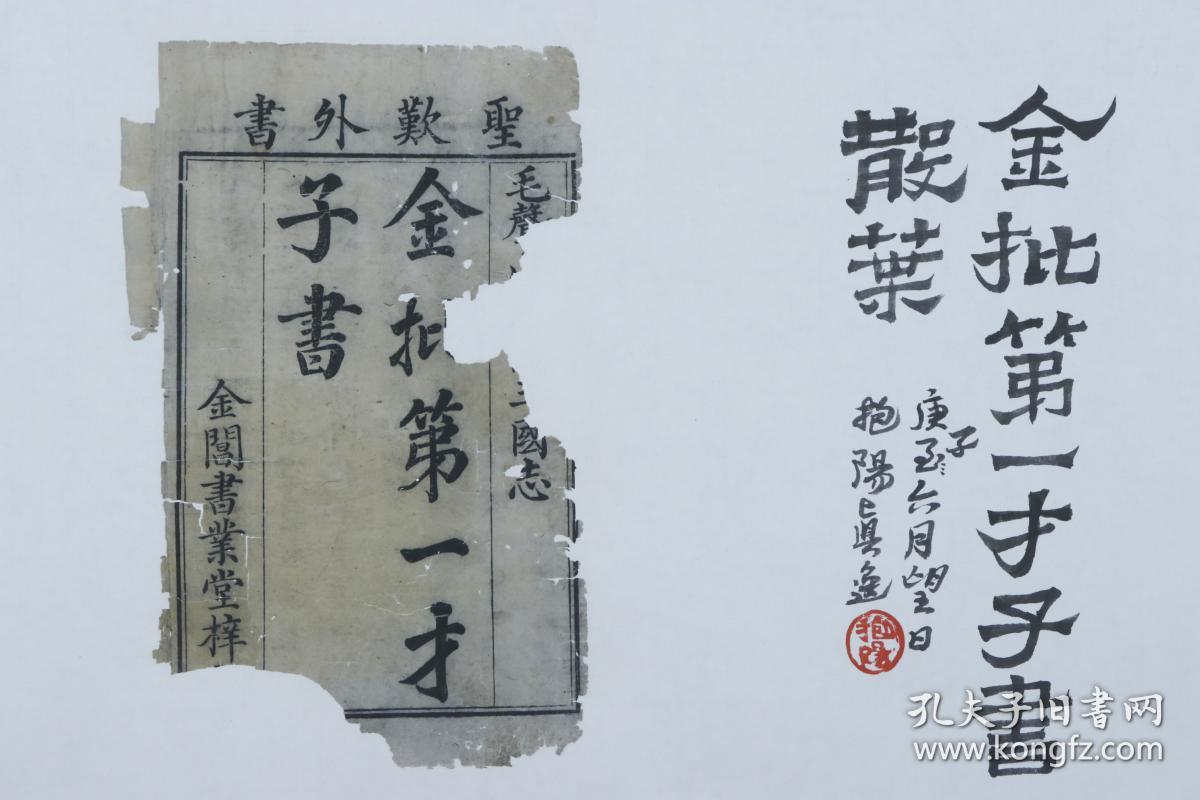 金批第一才子書
散葉
庚子六月望日
抱陽眞逸
抱陽
聖歎外書
毛聲
國志
金批第一才
子書
金閶書業堂梓
孔夫子旧书网
www.kongfz.com